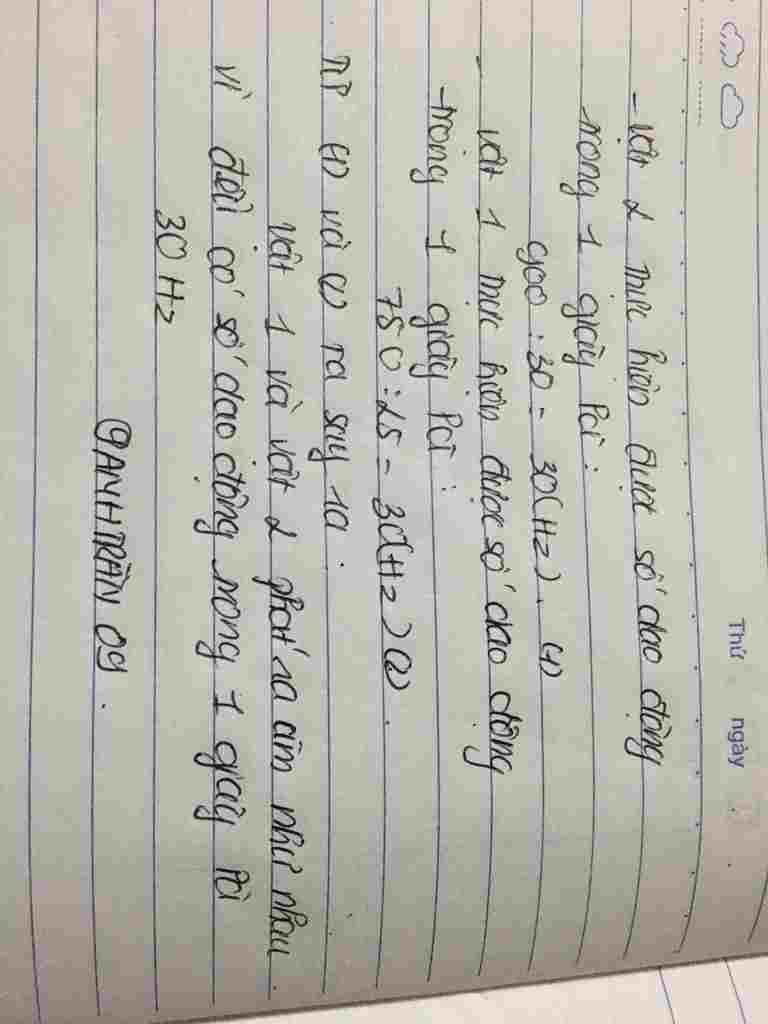 Thứ ngày
- Vật 2 thực hiện được số dao động
trong 1 giây là :
900 : 30 = 30(Hz). (1)
- Vật 1 thực hiện được số dao động
trong 1 giây là :
750 : 25 = 30(Hz) (2).
Từ (1) và (2) ta suy ra.
Vật 1 và vật 2 phát ra âm như nhau.
vì đều có số dao động trong 1 giây là
30 Hz
@ANHTRẦN 09.